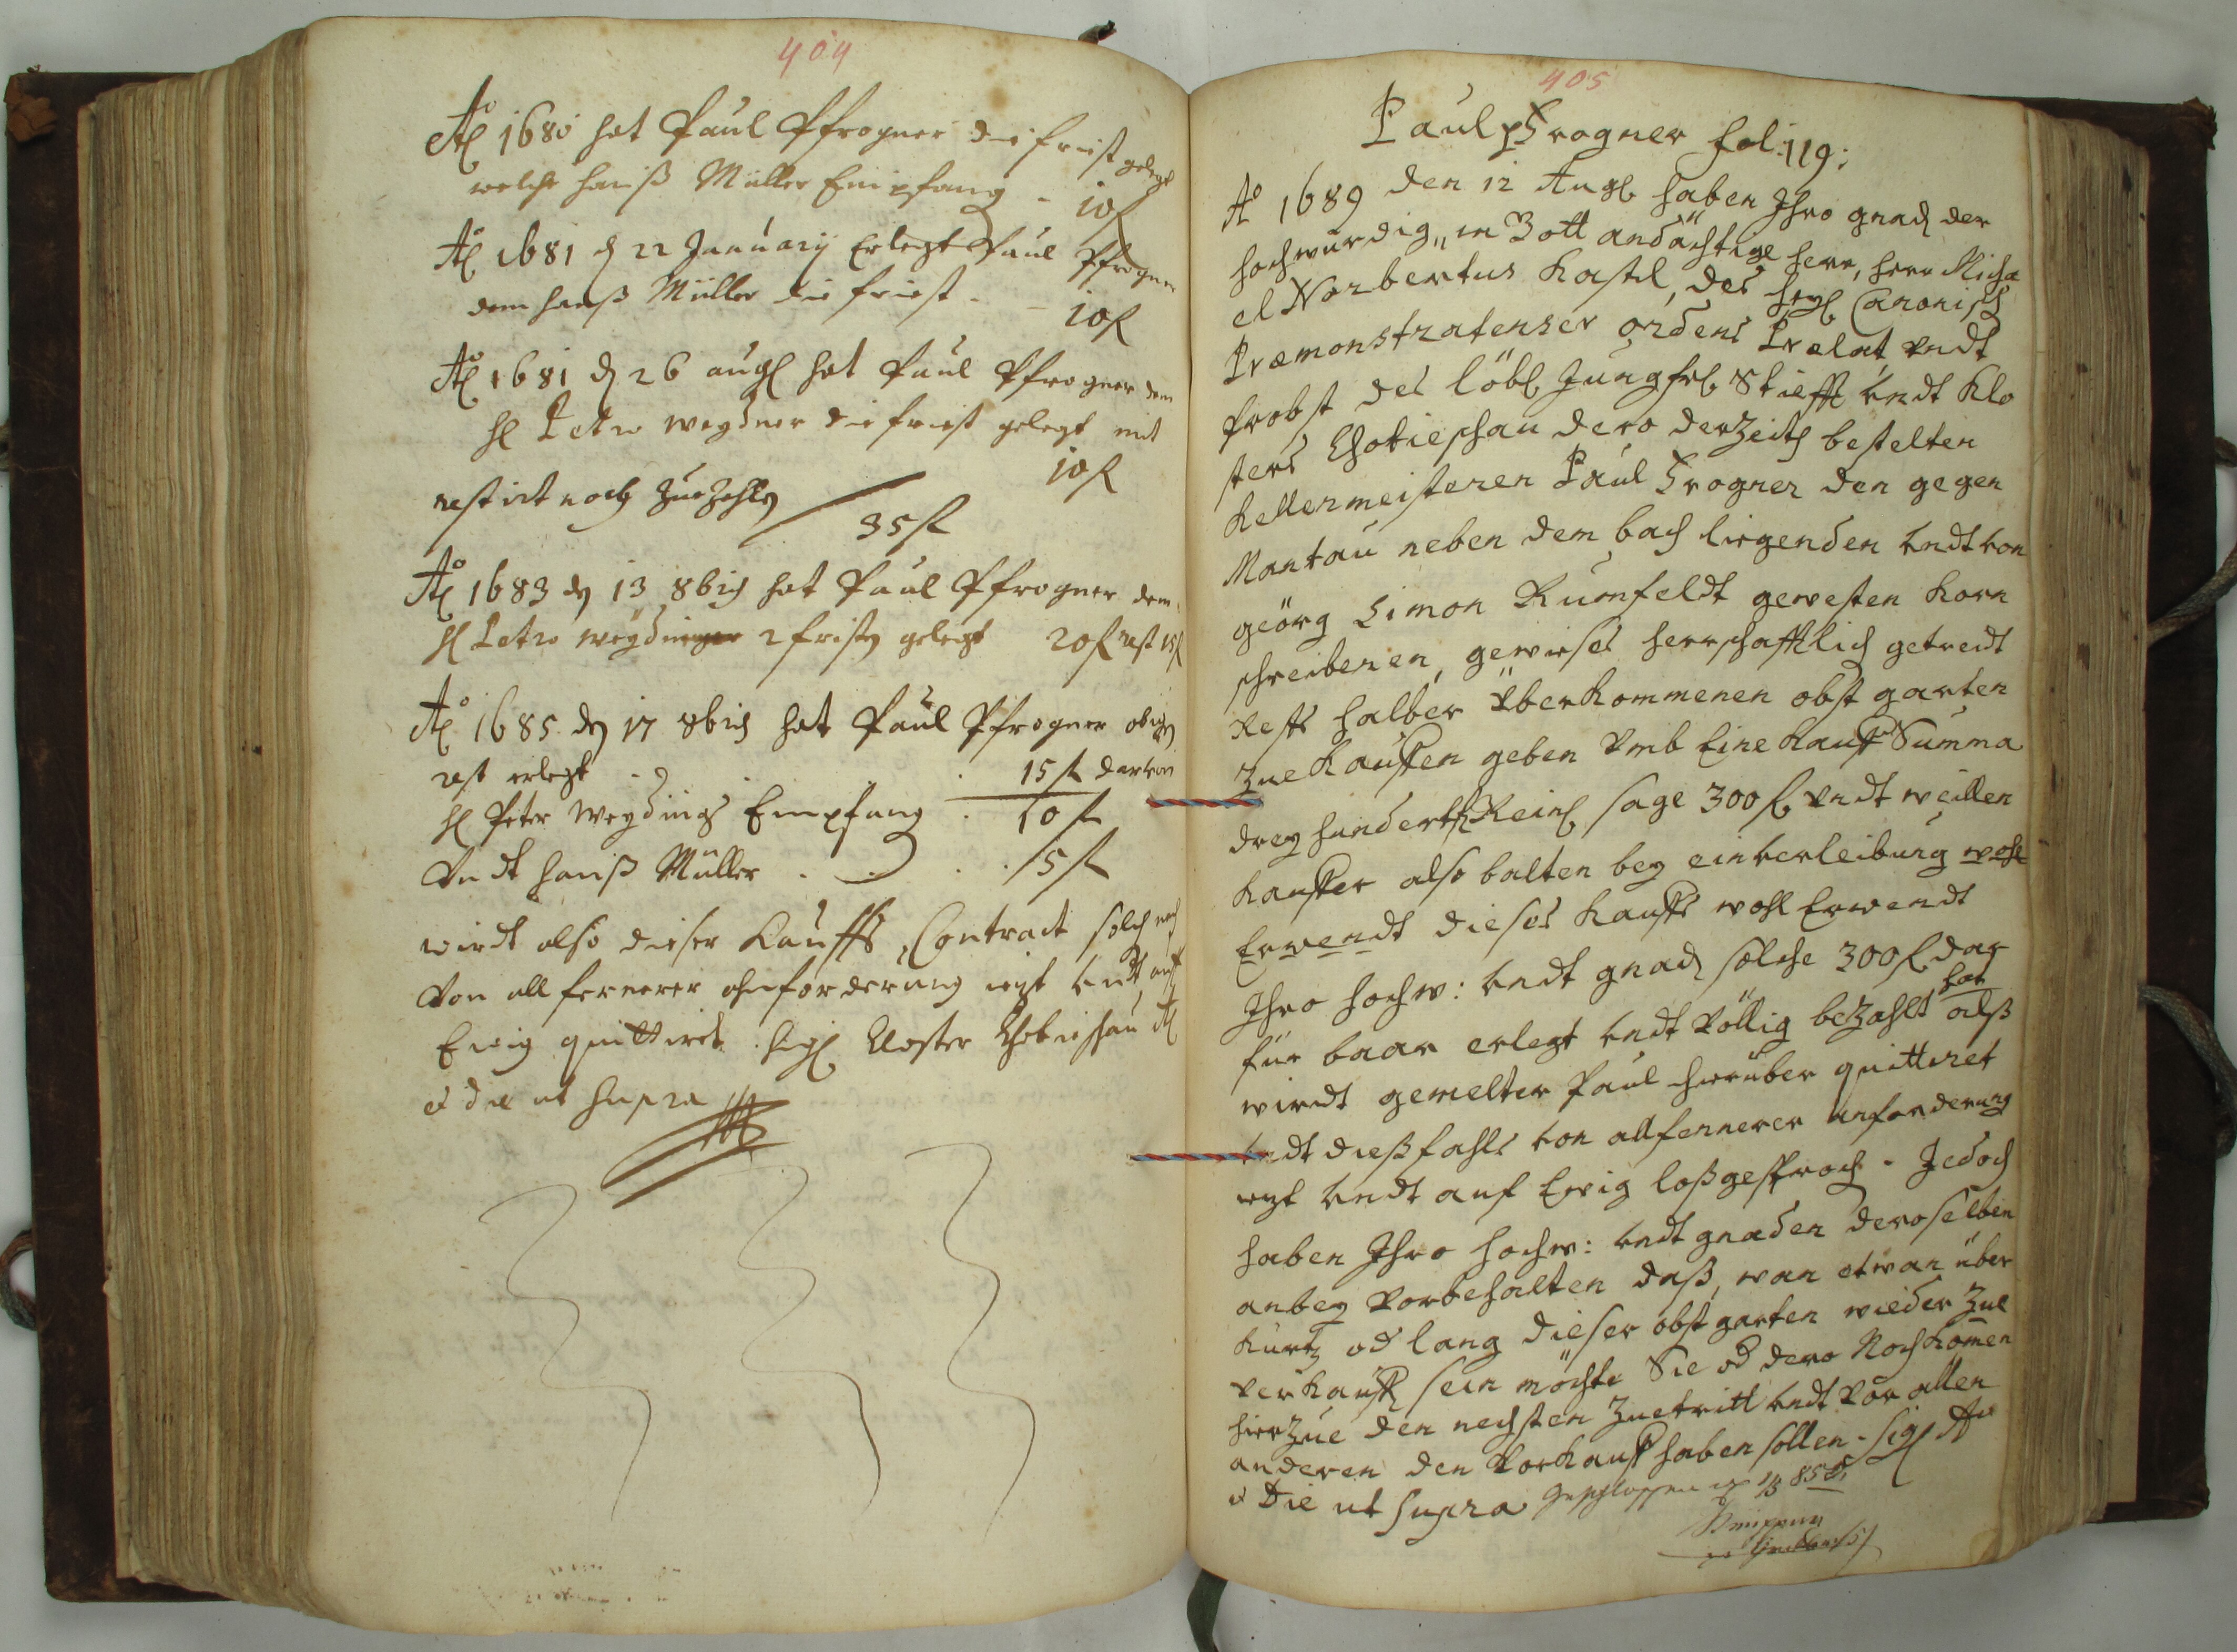 404
Aō 1680 hat Paul Pfrogner die frist gelegt
welche Hanß Müller Empfang - 10 fl
Aō 1681 d 22 January Erlegt Paul Pfrogner
dem Hanß Müller die frist - 10 fl
Aō 1681 d 26 aug hat Paul Pfrogner dem
H Petro Weydner die frist gelegt mit
10 fl
restirt noch zue Zehlen
35 fl
Aō 1683 den 13 8bris hat Paul Pfrogner dem
H Petro 2 fristen gelegt 20 fl rest 15 fl
Aō 1685 den 17 8bris hat Paul Pfrogner obigen
rest erlegt - 15 fl darvon
H Peter Empfang . 10 fl
Vndt Hanß Müller . . . 5 fl
wirdt also dieser Kauffs Contract
von all fernerer ahnforderung iezt vndt auf
Ewig quittiret. Sigl Closter Chotieschau Aō
et die ut supra
405
Paul Pfrogner fol: 119:
Aō 1689 den 12 Aug haben Ihro gnad der
hochwürdig, in Gott andächtige herr, herr Micha
el Norbertus Kastl, des heyl Canonisch
Præmonstratenser ordens Prælat vndt
Probst des löbl Jungfrl Stiefft vndt Klo
sters Chotieschau dero derzeith bestelten
Kellermeisteren Paul Frogner den gegen
Mantau neben dem bach liegenden vndt von
geörg Simon Rumfeldt gewesten Korn
schreiberen, gewieses herrschafftlich getreidt
Rests halber überkommenen obst garten
zue Kauffen geben vmb Eine Kauff Summa
drey hundert fl Rein sage 300 fl vndt weillen
Kauffer also balten bey einverleibung wohl
Erwendt dieses Kauffs wohl Erwendt
Ihro hochw: vndt gnad solche 300 fl dar
für baar erlegt vndt völlig bezahlt hat alß
wirdt gemelter Paul hierüber quittiret
vndt dießfahls von all fernerer anforderung
iezt vndt auf Ewig loßgesproch. Jedoch
haben Ihro hochw: vndt gnaden deroselben
anbey vorbehalten daß, wan etwan über
Kurtz od lang dieser obst garten wieder zue
verkauffen sein möchte Sie od dero Nachkomen
hierzue den nechsten zuetritt vndt vor allen
anderen den Vorkauff haben sollen. Sigl Aō
et Die ut supra